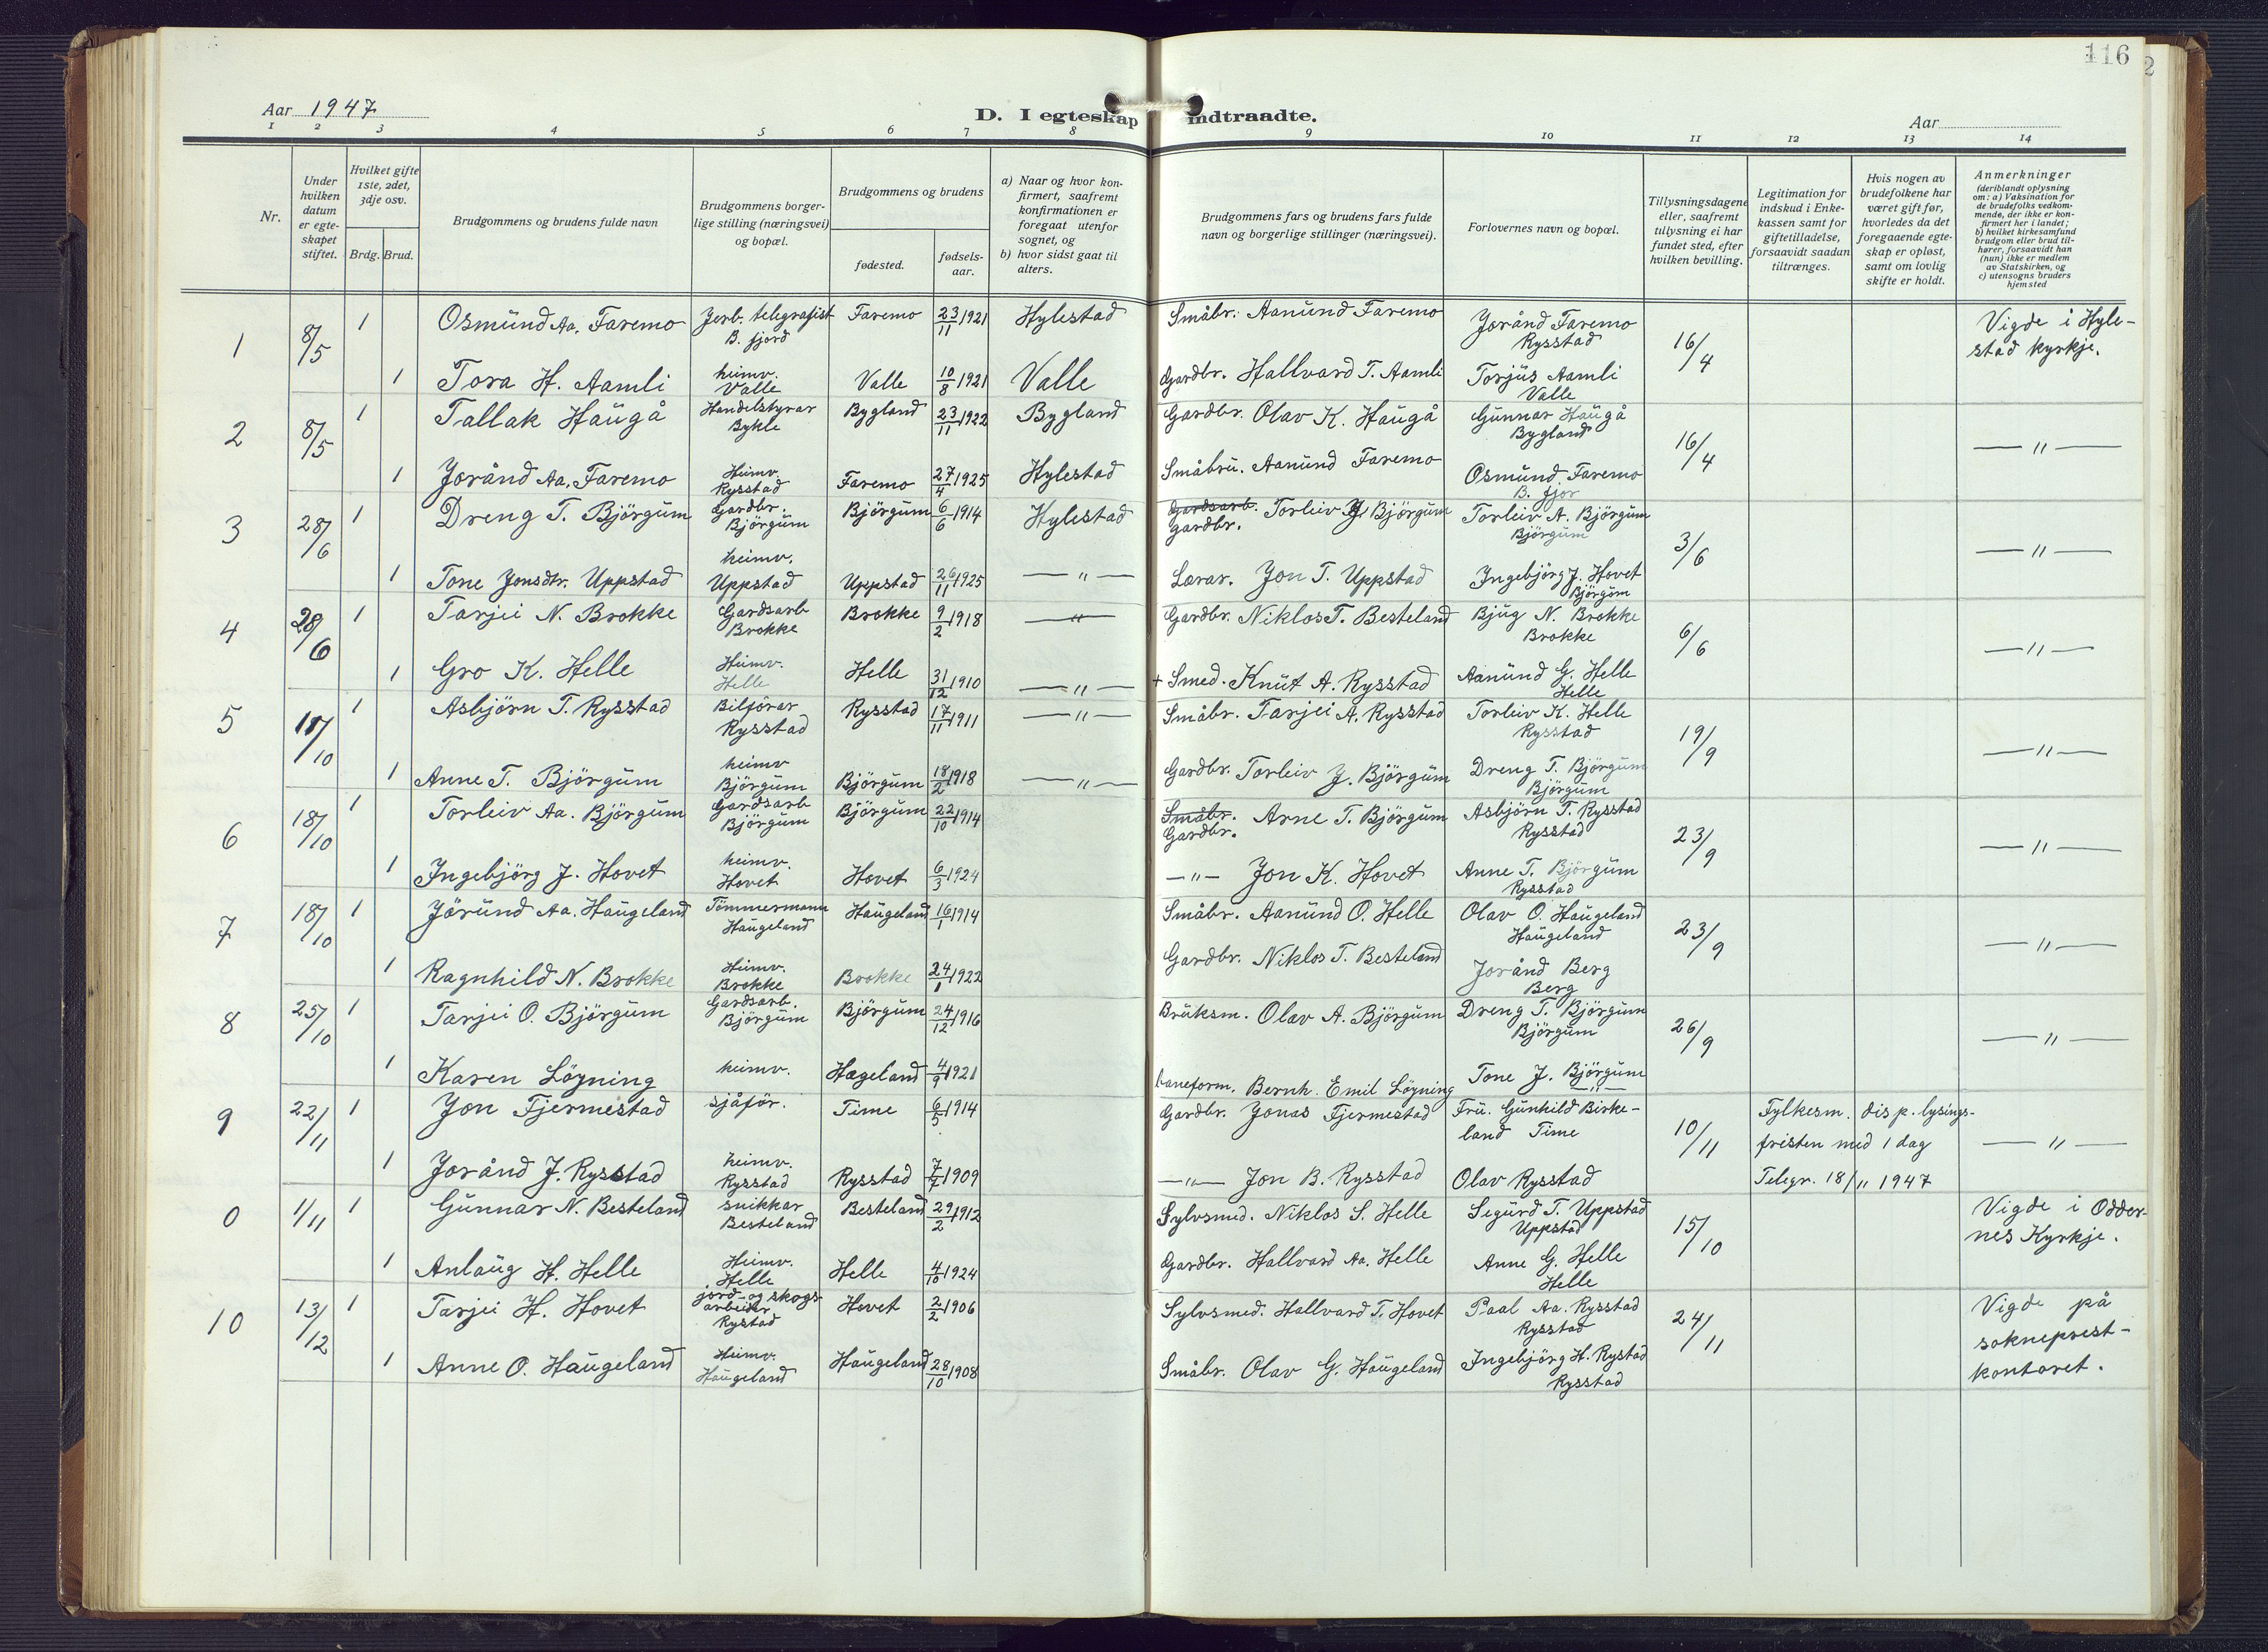 116
2
Aar 1947
D. I egteskap indtraadte.
Aar
1 2 3 4 5 6 7 8 9 10 11 12 13 14
Nr.
Under hvilken datum er egteskapet stiftet.
Hvilket gifte 1ste, 2det, 3dje osv.
Brdg. Brud.
Brudgommens og brudens fulde navn
Brudgommens borgerlige stilling (næringsvei) og bopæl.
Brudgommens og brudens
fødested.
fødselsaar.
a) Naar og hvor konfirmert, saafremt konfirmationen er foregaat utenfor sognet, og
b) hvor sidst gaat til alters.
Brudgommens fars og brudens fars fulde navn og borgerlige stillinger (næringsvei).
Forlovernes navn og bopæl.
Tillysningsdagene eller, saafremt tillysning ei har fundet sted, efter hvilken bevilling.
Legitimation for indskud i Enkekassen samt for giftetilladelse, forsaavidt saadan tiltrænges.
Hvis nogen av brudefolkene har været gift før, hvorledes da det foregaaende egteskap er opløst, samt om lovlig skifte er holdt.
Anmerkninger
(deriblandt oplysning om: a) Vaksination for de brudefolks vedkommende, der ikke er konfirmert her i landet;
b) hvilket kirkesamfund brudgom eller brud tilhører, forsaavidt han (hun) ikke er medlem av Statskirken, og
c) utensogns bruders hjemsted
1 8/5 1 Osmund Aa. Faremo Jerb. telegrafist B. fjord Faremo 23/11 1921 Hylestad Småbr. Aanund Faremo Joránd Faremo Rysstad 16/4 Vigde i Hylestad kyrkje.
1 Tora H. Aamli heimv. Valle Valle 10/8 1921 Valle Gardbr. Hallvard T. Aamli Torjus Aamli Valle
2 8/5 1 Tallak Haugå Handelstyrar Bykle Bygland 23/11 1922 Bygland Gardbr. Olav K. Haugå Gunnar Haugå Bygland 16/4 — " —
1 Joránd Aa. Faremo Heimv. Rysstad Faremo 27/4 1925 Hylestad Småbru. Aanund Faremo Osmund Faremo B. fjor
3 28/6 1 Dreng T. Björgum Gardbr. Björgum Björgum 6/6 1914 Hylestad Gardsarb. Gardbr. Torleiv J. Björgum Torleiv A. Björgum Björgum 3/6 — " —
1 Tone Jonsdtr. Uppstad heimv. Uppstad Uppstad 26/11 1925 — " — Lærar. Jon T. Uppstad Ingebjörg J. Hovet Björgum
4 28/6 1 Tarjei N. Brokke Gardsarb Brokke Brokke 9/2 1918 — " — Gardbr. Niklos T. Besteland Bjug N. Brokke Brokke 6/6 — " —
1 Gro K. Helle Heimv. Helle Helle 31/12 1910 — " — + Smed. Knut A. Rysstad Aanund G. Helle Helle
5 18/10 1 Asbjörn T. Rysstad Bilförar Rysstad Rysstad 17/11 1911 — " — Småbr. Tarjei A. Rysstad Torleiv K. Helle Rysstad 19/9 — " —
1 Anne T. Björgum heimv Björgum Björgum 18/2 1918 — " — Gardbr. Torleiv J. Björgum Dreng T. Björgum Björgum
6 18/10 1 Torleiv Aa. Björgum Gardsarb Björgum Björgum 22/10 1914 Småbr. Gardbr. Arne T. Björgum Asbjörn T. Rysstad Rysstad 23/9 — " —
1 Ingebjörg J. Hovet heimv. Hovet Hovet 6/3 1924 — " — Jon K. Hovet Anne T. Björgum Rysstad
7 18/10 1 Jörund Aa. Haugeland Tömmermann Haugeland Haugeland 16/1 1914 Småbr. Aanund O. Helle Olav O. Haugeland Haugeland 23/9 — " —
1 Ragnhild N. Brokke Heimv. Brokke Brokke 24/1 1922 Gardbr. Niklos T. Besteland Joránd Berg Berg
8 25/10 1 Tarjei O. Björgum Gardsarb. Björgum Björgum 24/12 1916 Bruksm. Olav A. Björgum Dreng T. Björgum Björgum 26/9 — " —
1 Karen Löyning heimv. Hægeland 4/9 1921 baneform. Bernh. Emil Löyning Tone J. Björgum — " —
9 22/11 1 Jon Fjermestad sjåför. Time 6/5 1914 Gardbr. Jonas Fjermestad Fru. Gunhild Birkeland Time 10/11 Fylkesm. disp. lysingsfristen med 1 dag Telegr. 18/11 1947 — " —
1 Joránd J. Rysstad heimv. Rysstad Rysstad 7/7 1909 — " — Jon B. Rysstad Olav Rysstad
0 1/11 1 Gunnar N. Besteland snikkar Besteland Besteland 29/2 1912 Sylvsmed. Niklos S. Helle Segurd T. Uppstad Uppstad 15/10 Vigde i Oddernes Kyrkje.
1 Anlaug H. Helle Heimv. Helle Helle 4/10 1924 Gardbr. Hallvard Aa. Helle Anne G. Helle Helle
10 13/12 1 Tarjei H. Hovet jord- og skogsarbeider Rystad Hovet 2/2 1906 Sylvsmed. Hallvard T. Hovet Paal Aa. Rysstad Rysstad 24/11 Vigde på sokneprestkontoret.
1 Anne O. Haugeland Heimv. Haugeland Haugeland 28/10 1908 Småbr. Olav G. Haugeland Ingebjörg H. Rystad Rysstad